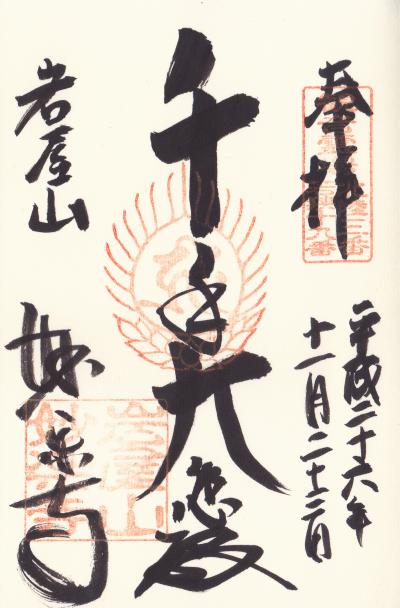 奉拝
平成二十六年
十一月二十三日
千手大悲殿
岩屋山
妙楽寺
岩屋山